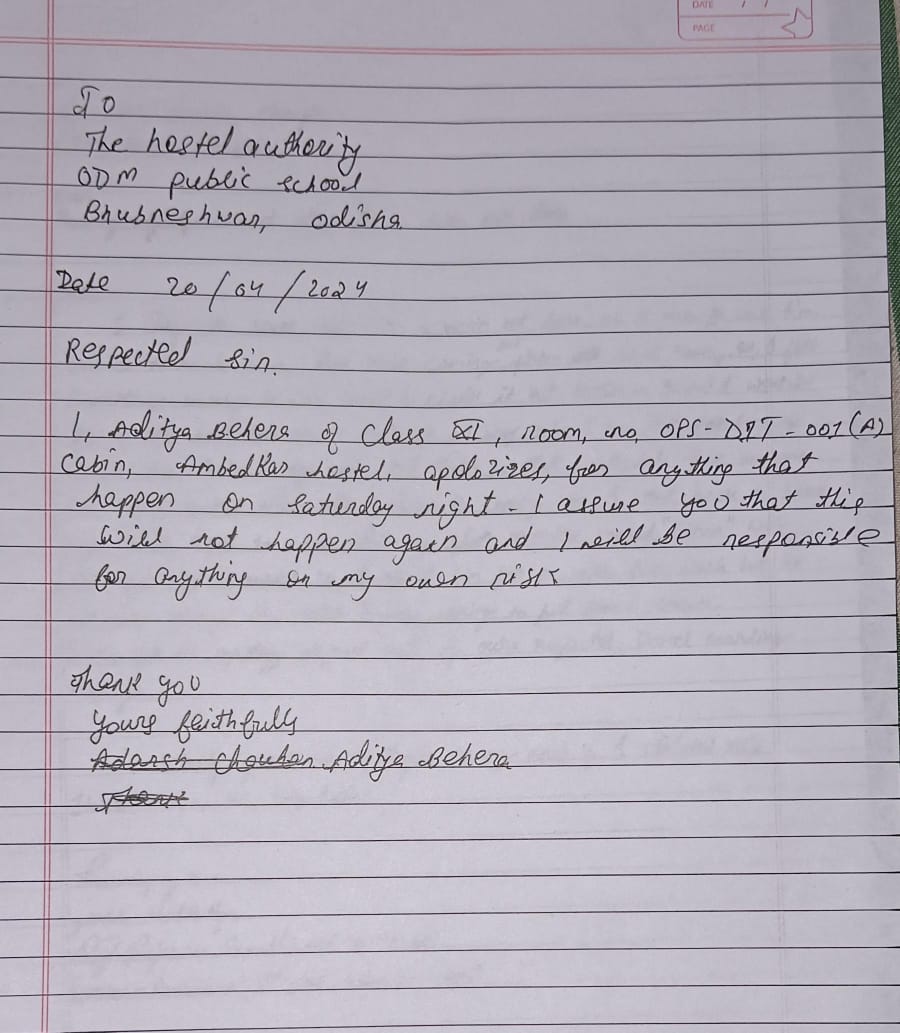 DATE / /
PAGE
To
The hostel authority
ODM public school
Bhubneshwar, odisha.
Date 20/04/2024
Respected sir.
I, Aditya Behera of Class XI, room, no, OPS-DPT-001(A)
cabin, Ambedkar hostel, apologizes, for anything that
happen on saturday night. I assure you that this
will not happen again and I will be responsible
for anything on my own risk
Thank you
yours faithfully
Adarsh Chouhan Aditya Behera
Thank